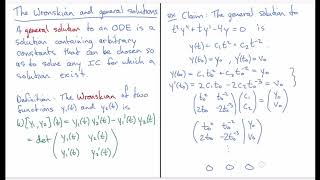 The Wronskian and general solutions
A general solution to an ODE is a
solution containing arbitrary
constants that can be chosen so
as to solve any IC for which a
solution exist.
Definition: The Wronskian of two
functions y₁(t) and y₂(t) is
W[y₁,y₂](t) = y₁(t) y₂'(t) - y₁'(t) y₂(t)
= det ( y₁(t) y₂(t)
y₁'(t) y₂'(t) )
ex Claim: The general solution to
t²y'' + ty' - 4y = 0 is
y(t) = c₁t² + c₂t⁻²
y(t₀) = c₁t₀² + c₂t₀⁻² = y₀
y'(t₀) = 2c₁t₀ - 2c₂t₀⁻³ = y₀'
( t₀² t₀⁻²
2t₀ -2t₀⁻³ ) ( c₁
c₂ ) = ( y₀
y₀' )
( t₀² t₀⁻² | y₀
2t₀ -2t₀⁻³ | y₀' )
⋮
0 0 0